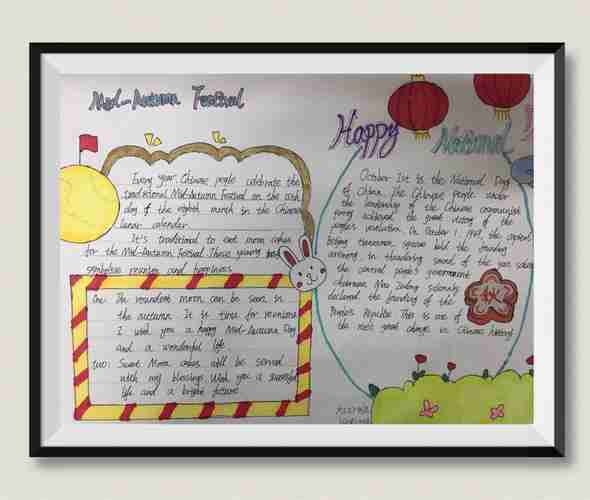 Mid-Autumn Festival
Every year Chinese people celebrate the
traditional Mid-Autumn Festival on the
day of the eighth month in the Chinese
lunar calendar
It's traditional to eat moon cakes
for the Mid-Autumn Festival These
symbolize reunion and happiness
One: The roundest moon can be seen in
the autumn It is time for reunions
I wish you a happy Mid-Autumn Day
and a wonderful life
two: Sweet Moon cakes will be served
with my blessings Wish you a successful
life and a bright future
Happy National
October 1st is the National Day
of China The Chinese people under
the leadership of the Chinese communist
the great victory of the
people's revolution On October 1 1949 the capital
square held the
ceremony in thundering sound of the
the central people's government
chairman Mao Zedong solemnly
declared the founding of the
People's Republic This is one of
the most great changes in Chinese history
秋